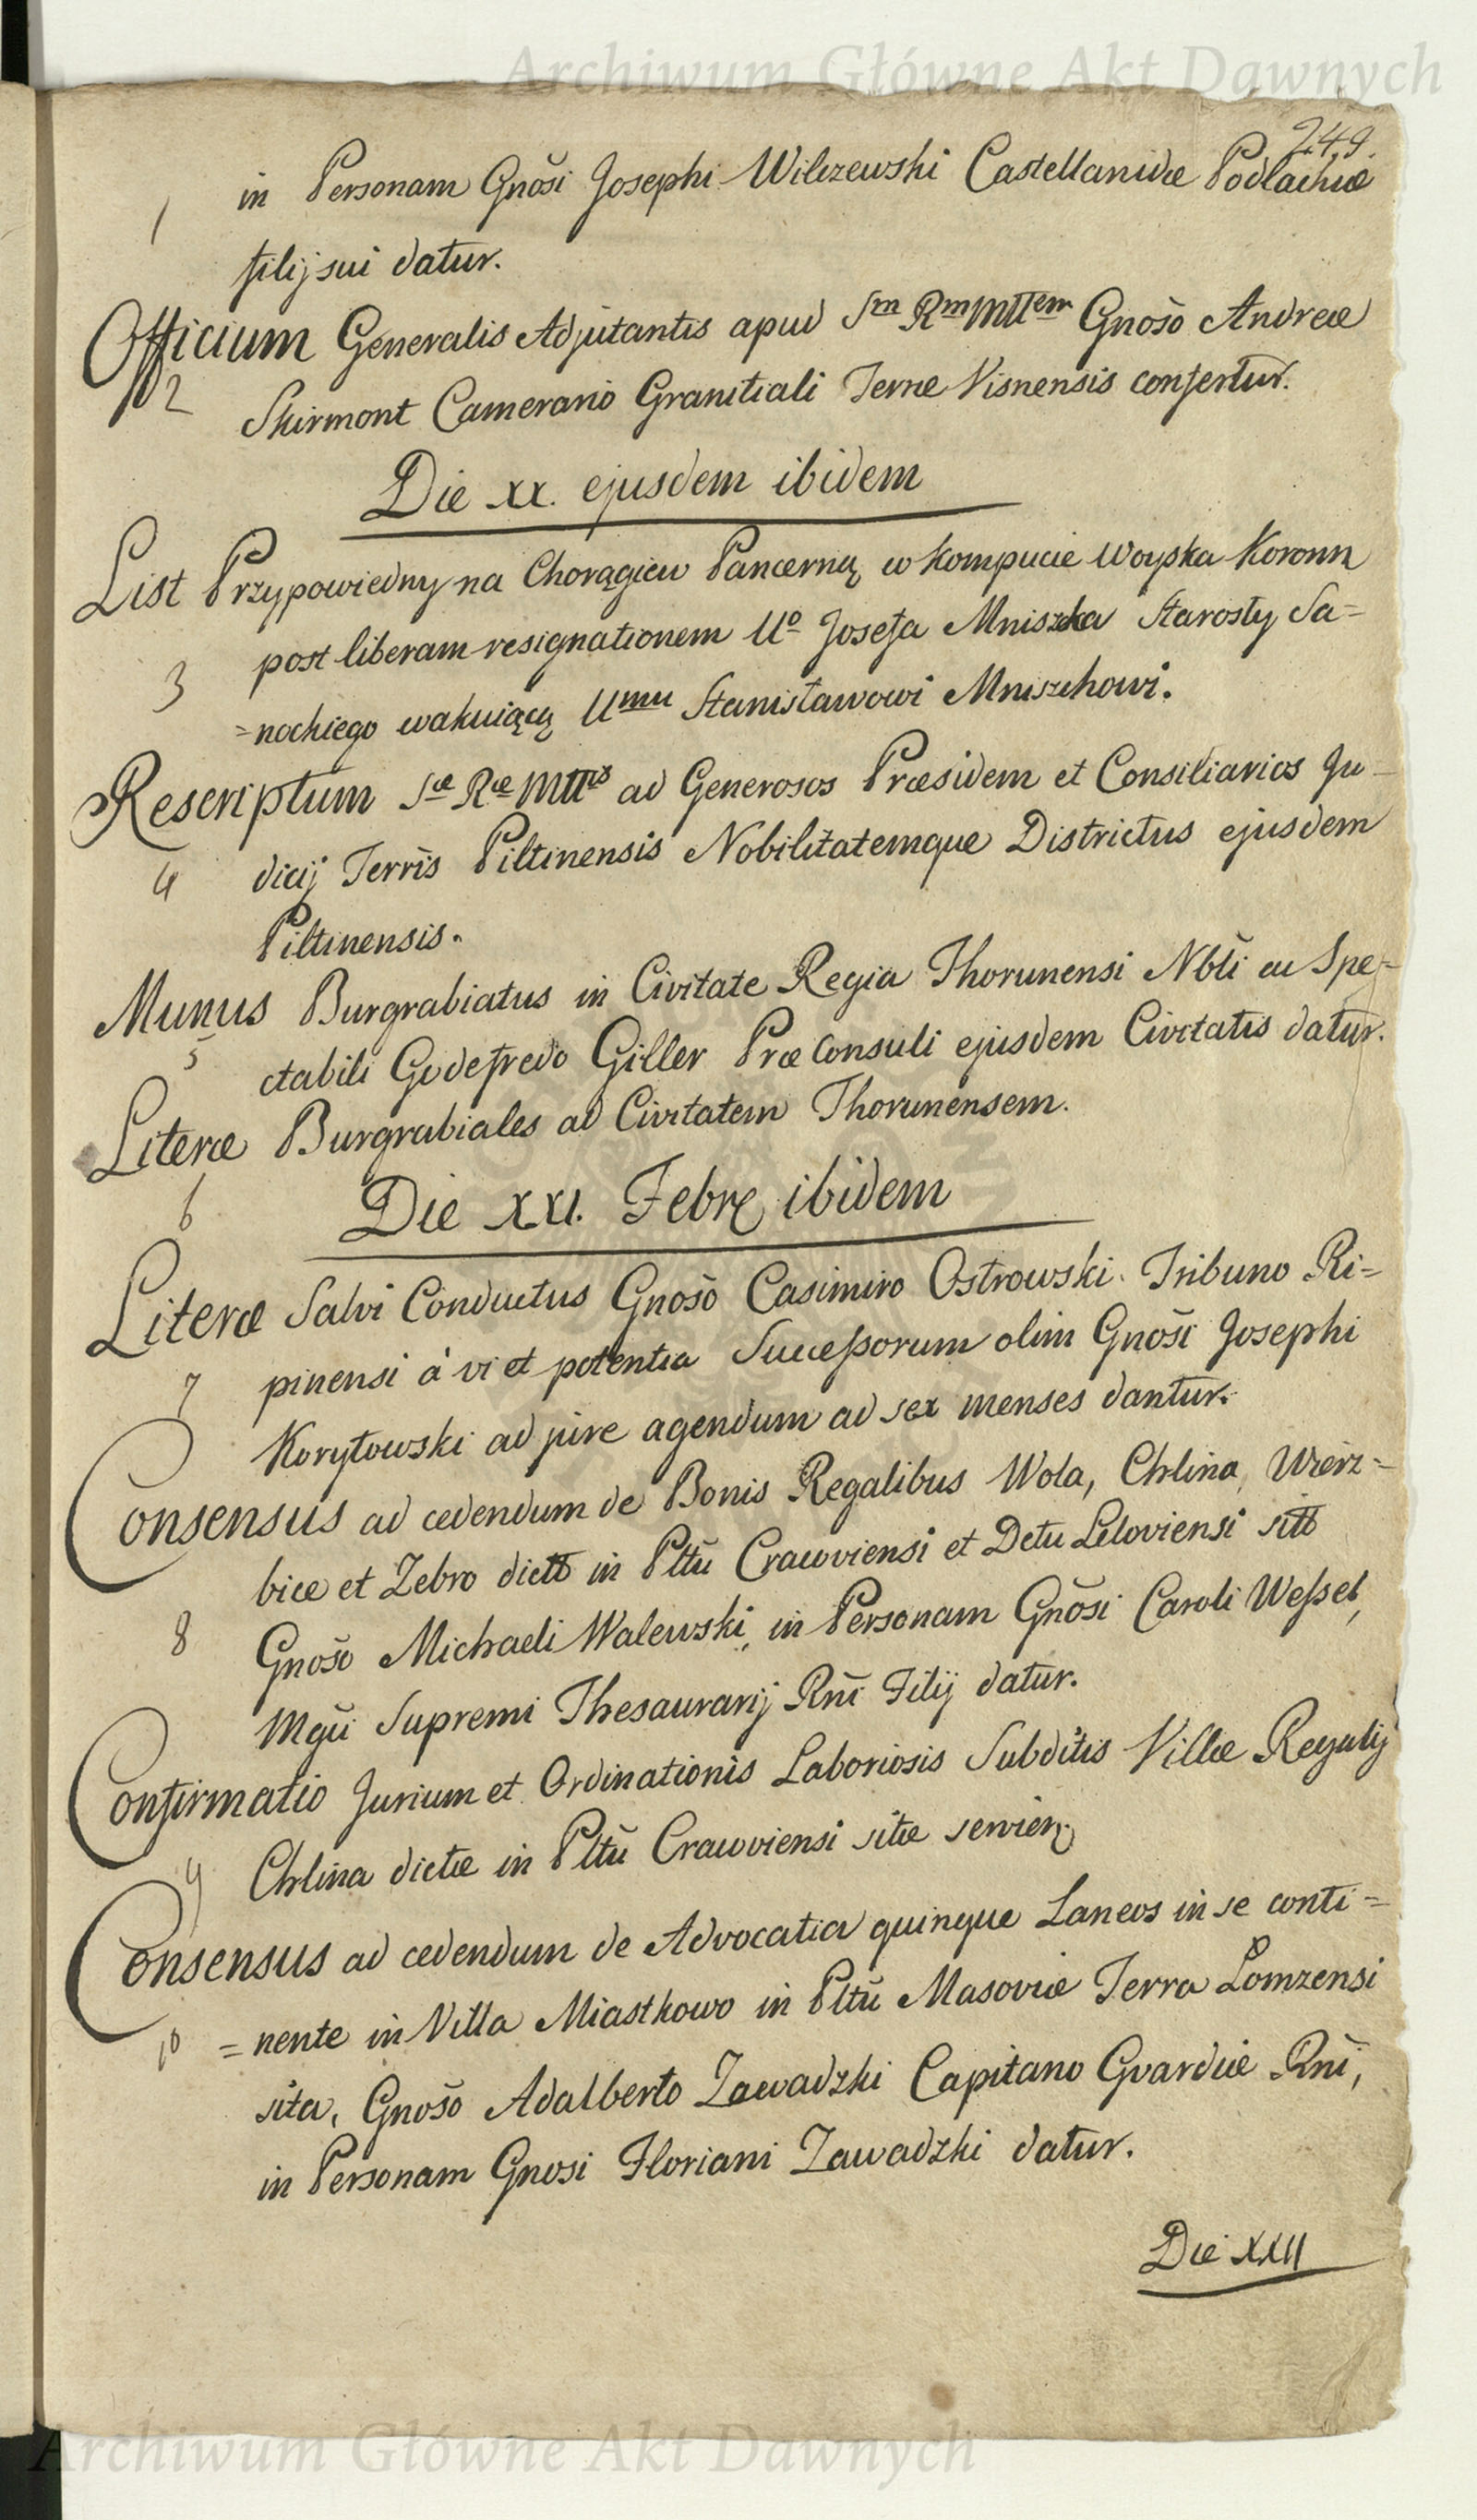 Archiwum Główne Akt Dawnych
249.
in Personam Gnõsi Josephi Wilczewski Castellanidæ Podlachiæ
1
filij sui datur.
Officium Generalis Adjutantis apud Sm Rm MTTem Gnõso Andreæ
2
Skirmont Camerario Granitiali Terræ Visnensis confertur.
Die XX. ejusdem ibidem
List Przypowiedny na Chorągiew Pancerną w kompucie Woyska Koronn
post liberam resignationem Uo Josefa Mniszcha Starosty Sa=
3
=nockiego wakuiącą Umu Stanisławowi Mniszchowi.
Rescriptum Sæ Ræ MTTis ad Generosos Præsidem et Consiliarios Ju-
4
dicij Terris Piltinensis Nobilitatemque Districtus ejusdem
Piltinensis.
Munus Burgrabiatus in Civitate Regia Thorunensi Nbli ac Spe=
5
ctabili Godefredo Giller Præ Consuli ejusdem Civitatis datur.
Literæ Burgrabiales ad Civitatem Thorunensem.
6
Die XXI. Febrę ibidem
Literæ Salvi Conductus Gnõso Casimiro Ostrowski Tribuno Ri=
pinensi à vi et potentia Succeßorum olim Gnõsi Josephi
7
Korytowski ad jure agendum ad sex menses dantur.
Consensus ad cedendum de Bonis Regalibus Wola, Chlina, Wierz=
bice et Zebro dictt in Pltũ Cracoviensi et Dctu Leloviensi sitt
8
Gnõso Michaeli Walewski, in Personam Gnõsi Caroli Weßel,
Mgũi Supremi Thesaurarij Rnĩ Filij datur.
Confirmatio Jurium et Ordinationis Laboriosis Subditis Villæ Regalij
9
Chlina dictæ in Pltũ Cracoviensi sitæ servien.
Consensus ad cedendum de Advocatia quinque Laneos in se conti=
10
=nente in Villa Miastkowo in Pltũ Masoviæ Terra Lomzensi
sita, Gnõso Adalberto Zawadzki Capitano Gvardiæ Rnĩ,
in Personam Gnosi Floriani Zawadzki datur.
Die XXII
Archiwum Główne Akt Dawnych